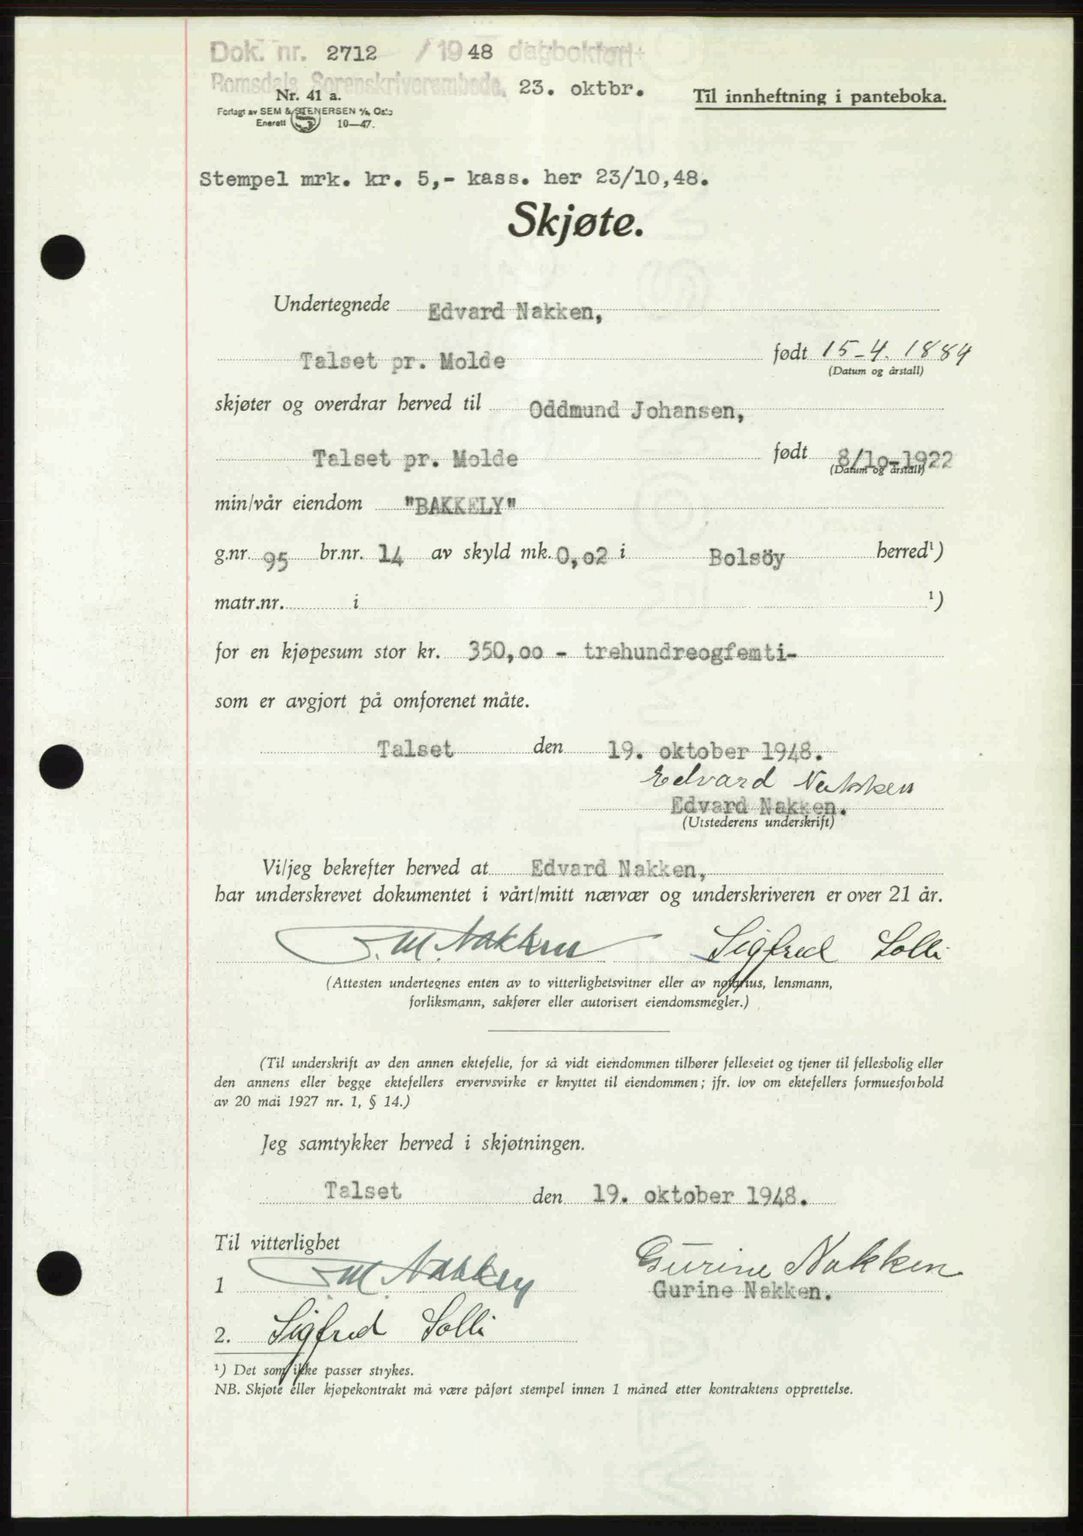 Dok. nr. 2712 / 1948 dagbokført
Romsdals Sorenskriverembede, 23. oktbr.
Nr. 41 a.
Forlagt av SEM & STENERSEN A/S, Oslo
Enerett 10—47.
Til innheftning i panteboka.
Stempel mrk. kr. 5,- kass. her 23/10,48.
Skjøte.
Undertegnede Edvard Nakken,
Talset pr. Molde født 15-4. 1884
(Datum og årstall)
skjøter og overdrar herved til Oddmund Johansen,
Talset pr. Molde født 8/10-1922
(Datum og årstall)
min/vår eiendom "BAKKELY"
g.nr. 95 br.nr. 14 av skyld mk. 0,02 i Bolsöy herred¹)
matr.nr. i ¹)
for en kjøpesum stor kr. 350,00 - trehundreogfemti-
som er avgjort på omforenet måte.
Talset den 19. oktober 1948.
Edvard Nakken
Edvard Nakken.
(Utstederens underskrift)
Vi/jeg bekrefter herved at Edvard Nakken,
har underskrevet dokumentet i vårt/mitt nærvær og underskriveren er over 21 år.
M. Nakken Sigfred Solli
(Attesten undertegnes enten av to vitterlighetsvitner eller av notarius, lensmann,
forliksmann, sakfører eller autorisert eiendomsmegler.)
(Til underskrift av den annen ektefelle, for så vidt eiendommen tilhører felleseiet og tjener til fellesbolig eller
den annens eller begge ektefellers ervervsvirke er knyttet til eiendommen; jfr. lov om ektefellers formuesforhold
av 20 mai 1927 nr. 1, § 14.)
Jeg samtykker herved i skjøtningen.
Talset den 19. oktober 1948.
Til vitterlighet
1 M. Nakken Gurine Nakken
Gurine Nakken.
2. Sigfred Solli
¹) Det som ikke passer strykes.
NB. Skjøte eller kjøpekontrakt må være påført stempel innen 1 måned etter kontraktens opprettelse.